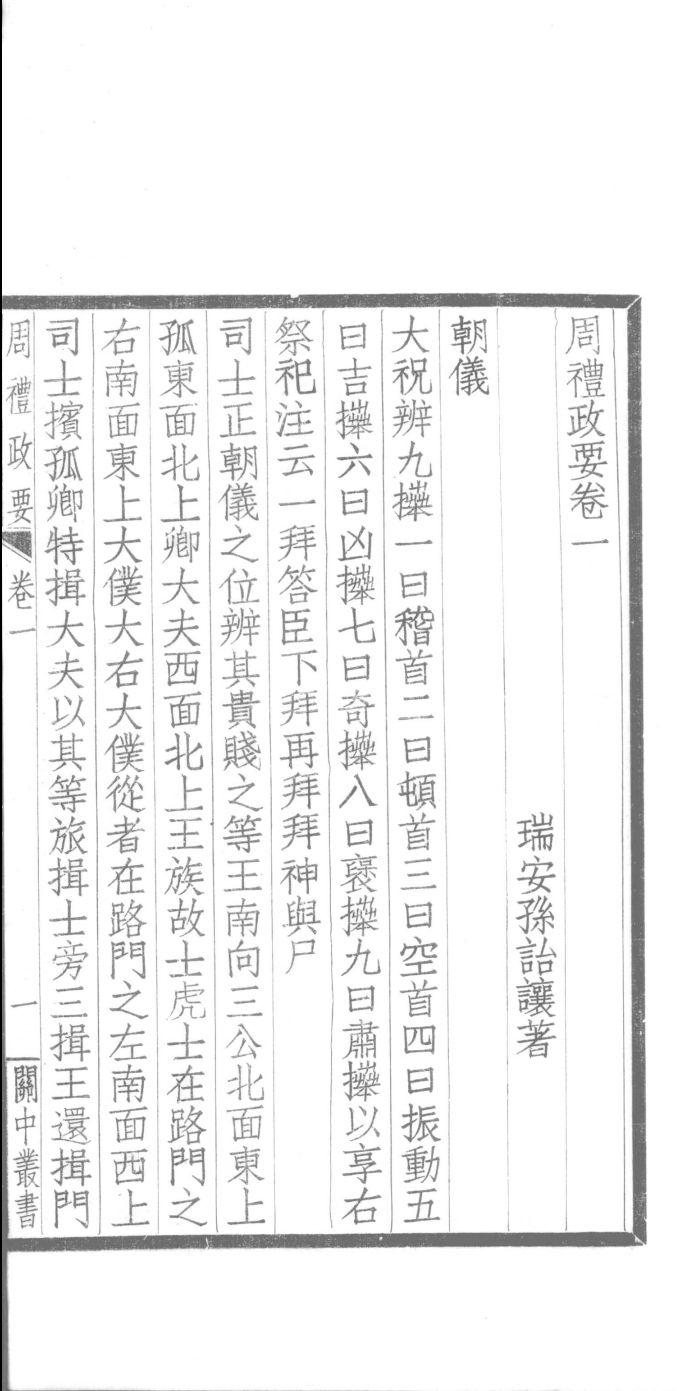 周禮政要卷一
瑞安孫詒讓著
朝儀
大祝辨九㩓一曰稽首二曰頓首三曰空首四曰振動五
曰吉㩓六曰凶㩓七曰奇㩓八曰襃㩓九曰肅㩓以享右
祭祀注云一拜答臣下拜再拜拜神與尸
司士正朝儀之位辨其貴賤之等王南向三公北面東上
孤東面北上卿大夫西面北上王族故士虎士在路門之
右南面東上大僕大右大僕從者在路門之左南面西上
司士擯孤卿特揖大夫以其等旅揖士旁三揖王還揖門
周禮政要 卷一 一 關中叢書